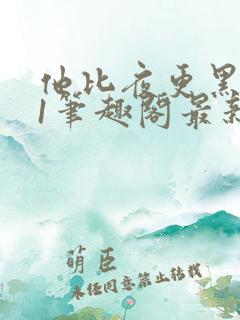 他比夜更黑
1筆趣閣最新
萌臣
未经同意禁止转载